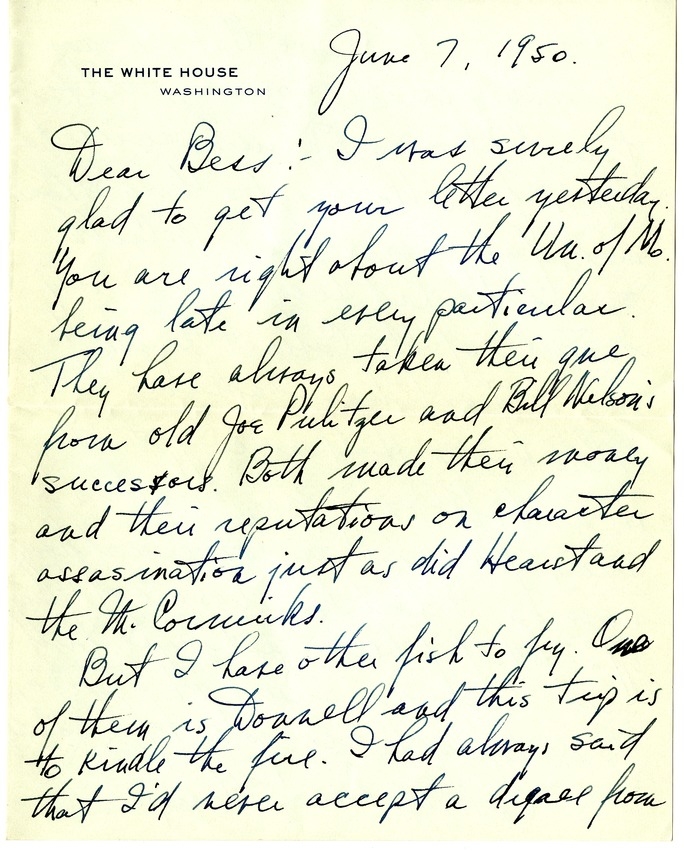 June 7, 1950.
THE WHITE HOUSE
WASHINGTON
Dear Bess:- I was surely
glad to get your letter yesterday.
You are right about the Un. of Mo.
being late in every particular.
They have always taken their que
from old Joe Pulitzer and Bill Nelson's
successors. Both made their money
and their reputations on character
assasination just as did Hearst and
the McCormicks.
But I have other fish to fry. One
of them is Donnell and this trip is
to kindle the fire. I had always said
that I'd never accept a degree from